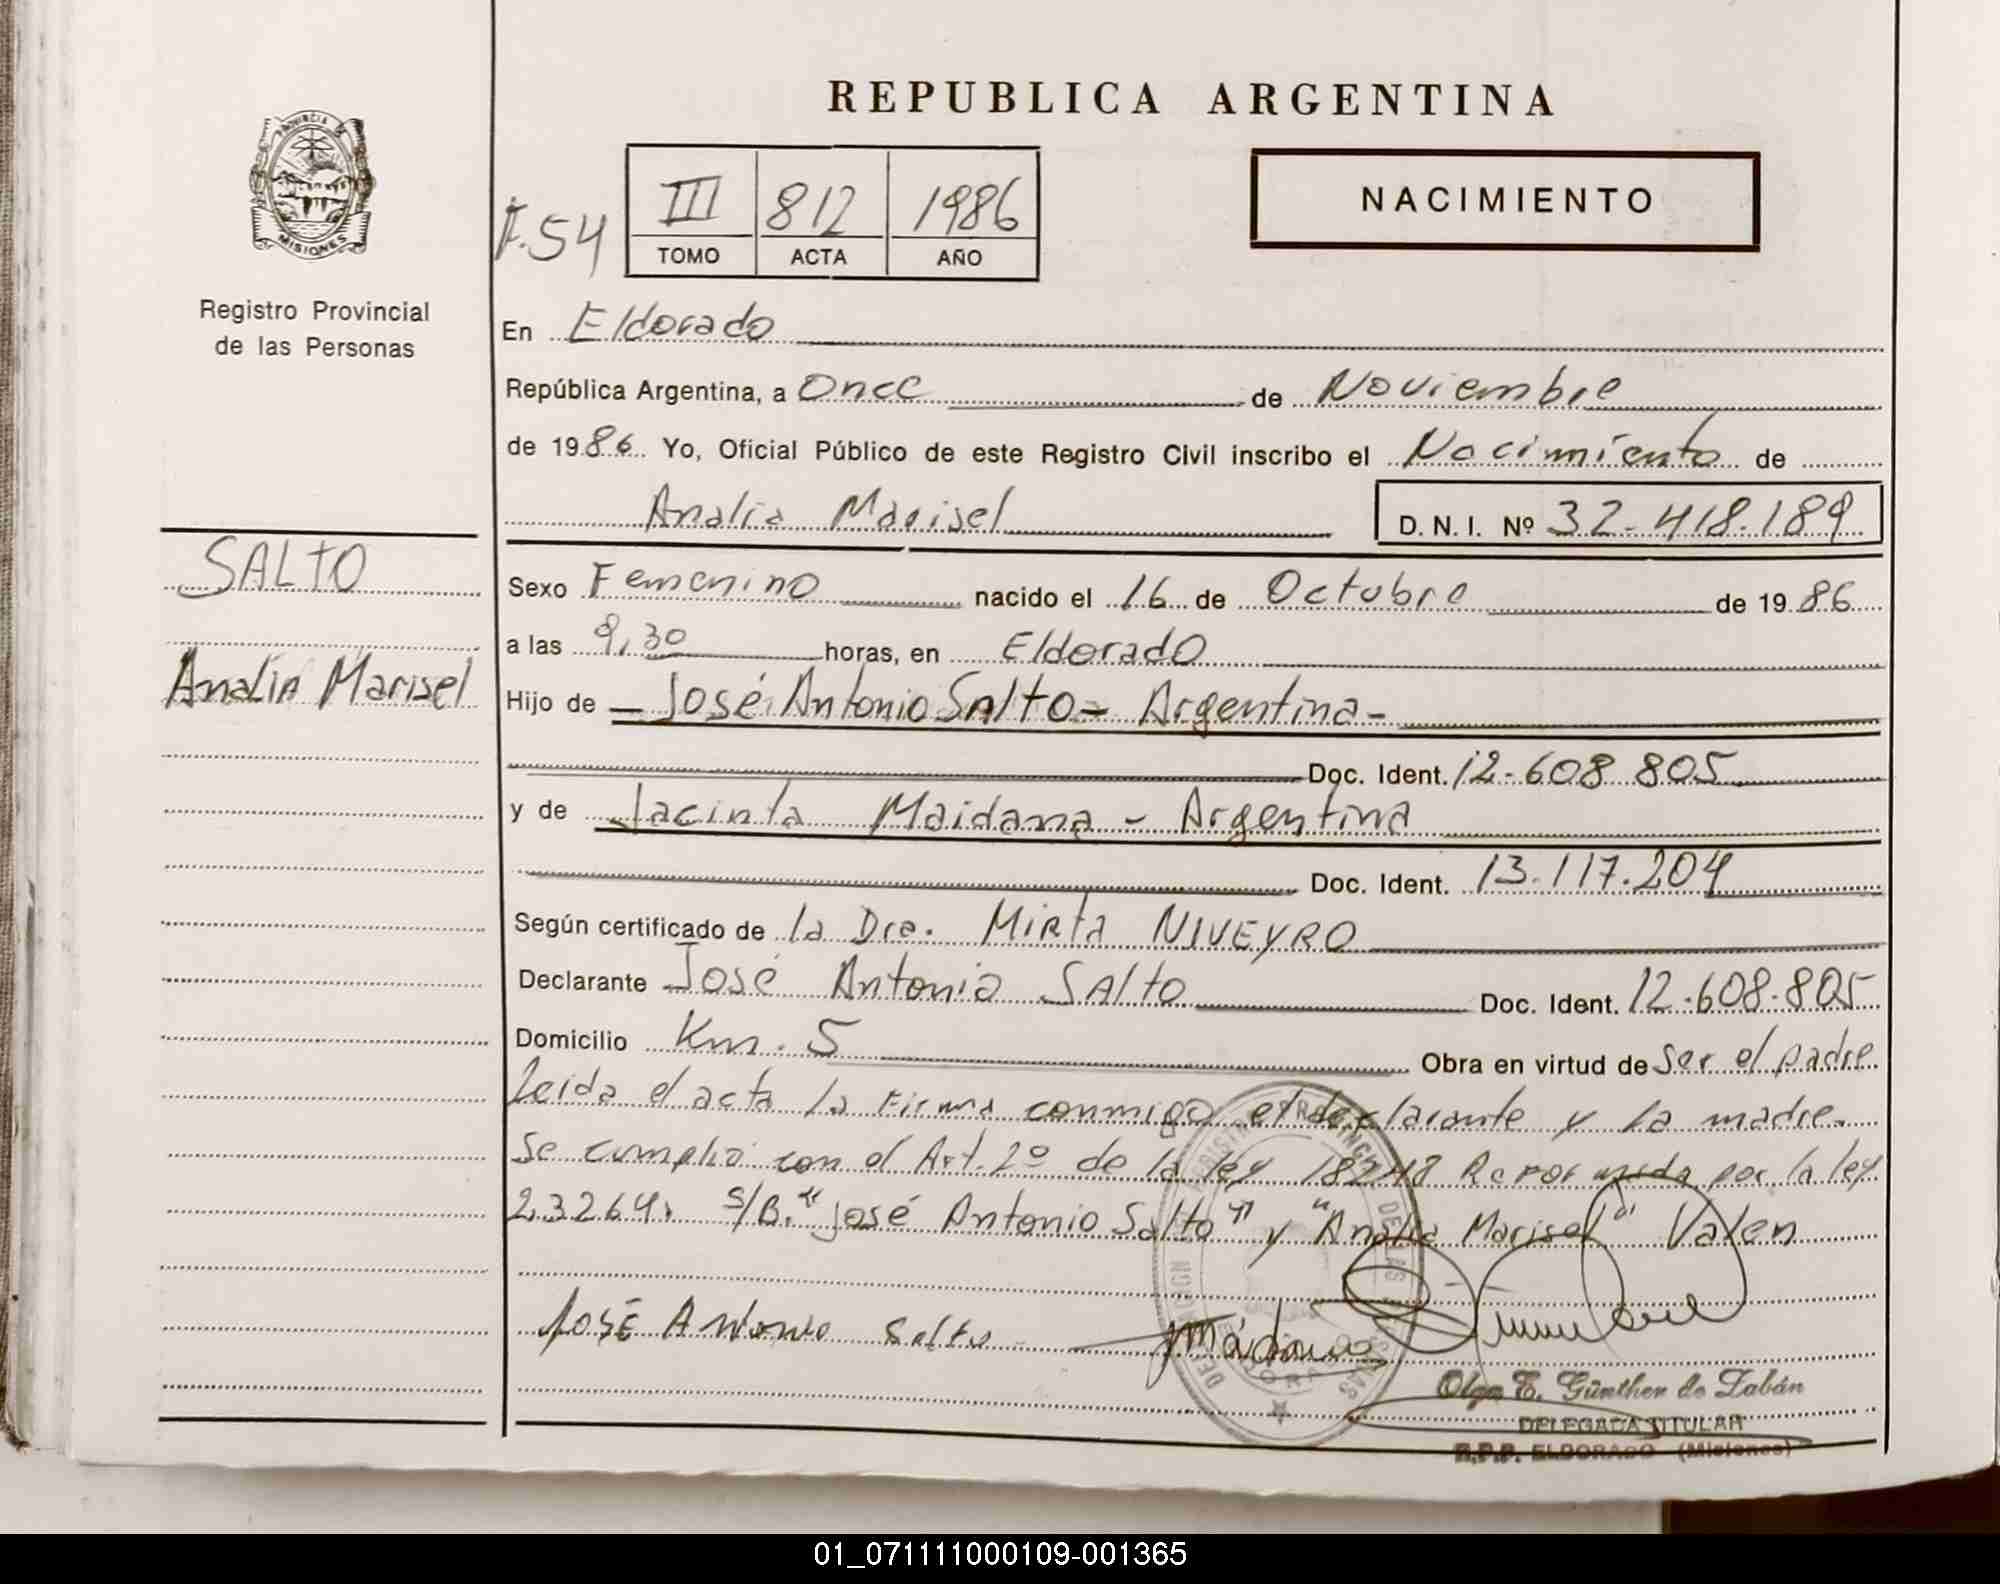 REPUBLICA ARGENTINA
PROVINCIA DE
MISIONES
Registro Provincial
de las Personas
F.54
III 812 1986
TOMO ACTA AÑO
NACIMIENTO
En Eldorado
República Argentina, a Once de Noviembre
de 1986 Yo, Oficial Público de este Registro Civil inscribo el Nacimiento de
Analia Marisel D.N.I. Nº 32-418.189
SALTO
Analia Marisel
Sexo Femenino nacido el 16 de Octubre de 1986
a las 9,30 horas, en Eldorado
Hijo de - José Antonio Salto - Argentina -
Doc. Ident. 12-608 805
y de Jacinta Maidana - Argentina
Doc. Ident. 13.117.204
Según certificado de la Dra. Mirta NIVEYRO
Declarante José Antonio Salto Doc. Ident. 12-608-805
Domicilio Km. 5 Obra en virtud de ser el padre
Leida el acta la firma conmigo el declarante y la madre.
Se cumplió con el Art. 2º de la ley 18248 Reformada por la ley
23264. S/B. "José Antonio Salto" y "Analia Marisel" Valen
José Antonio Salto
Olga E. Günther de Zabán
DELEGADA TITULAR
R.P.P. ELDORADO (Misiones)
01_071111000109-001365